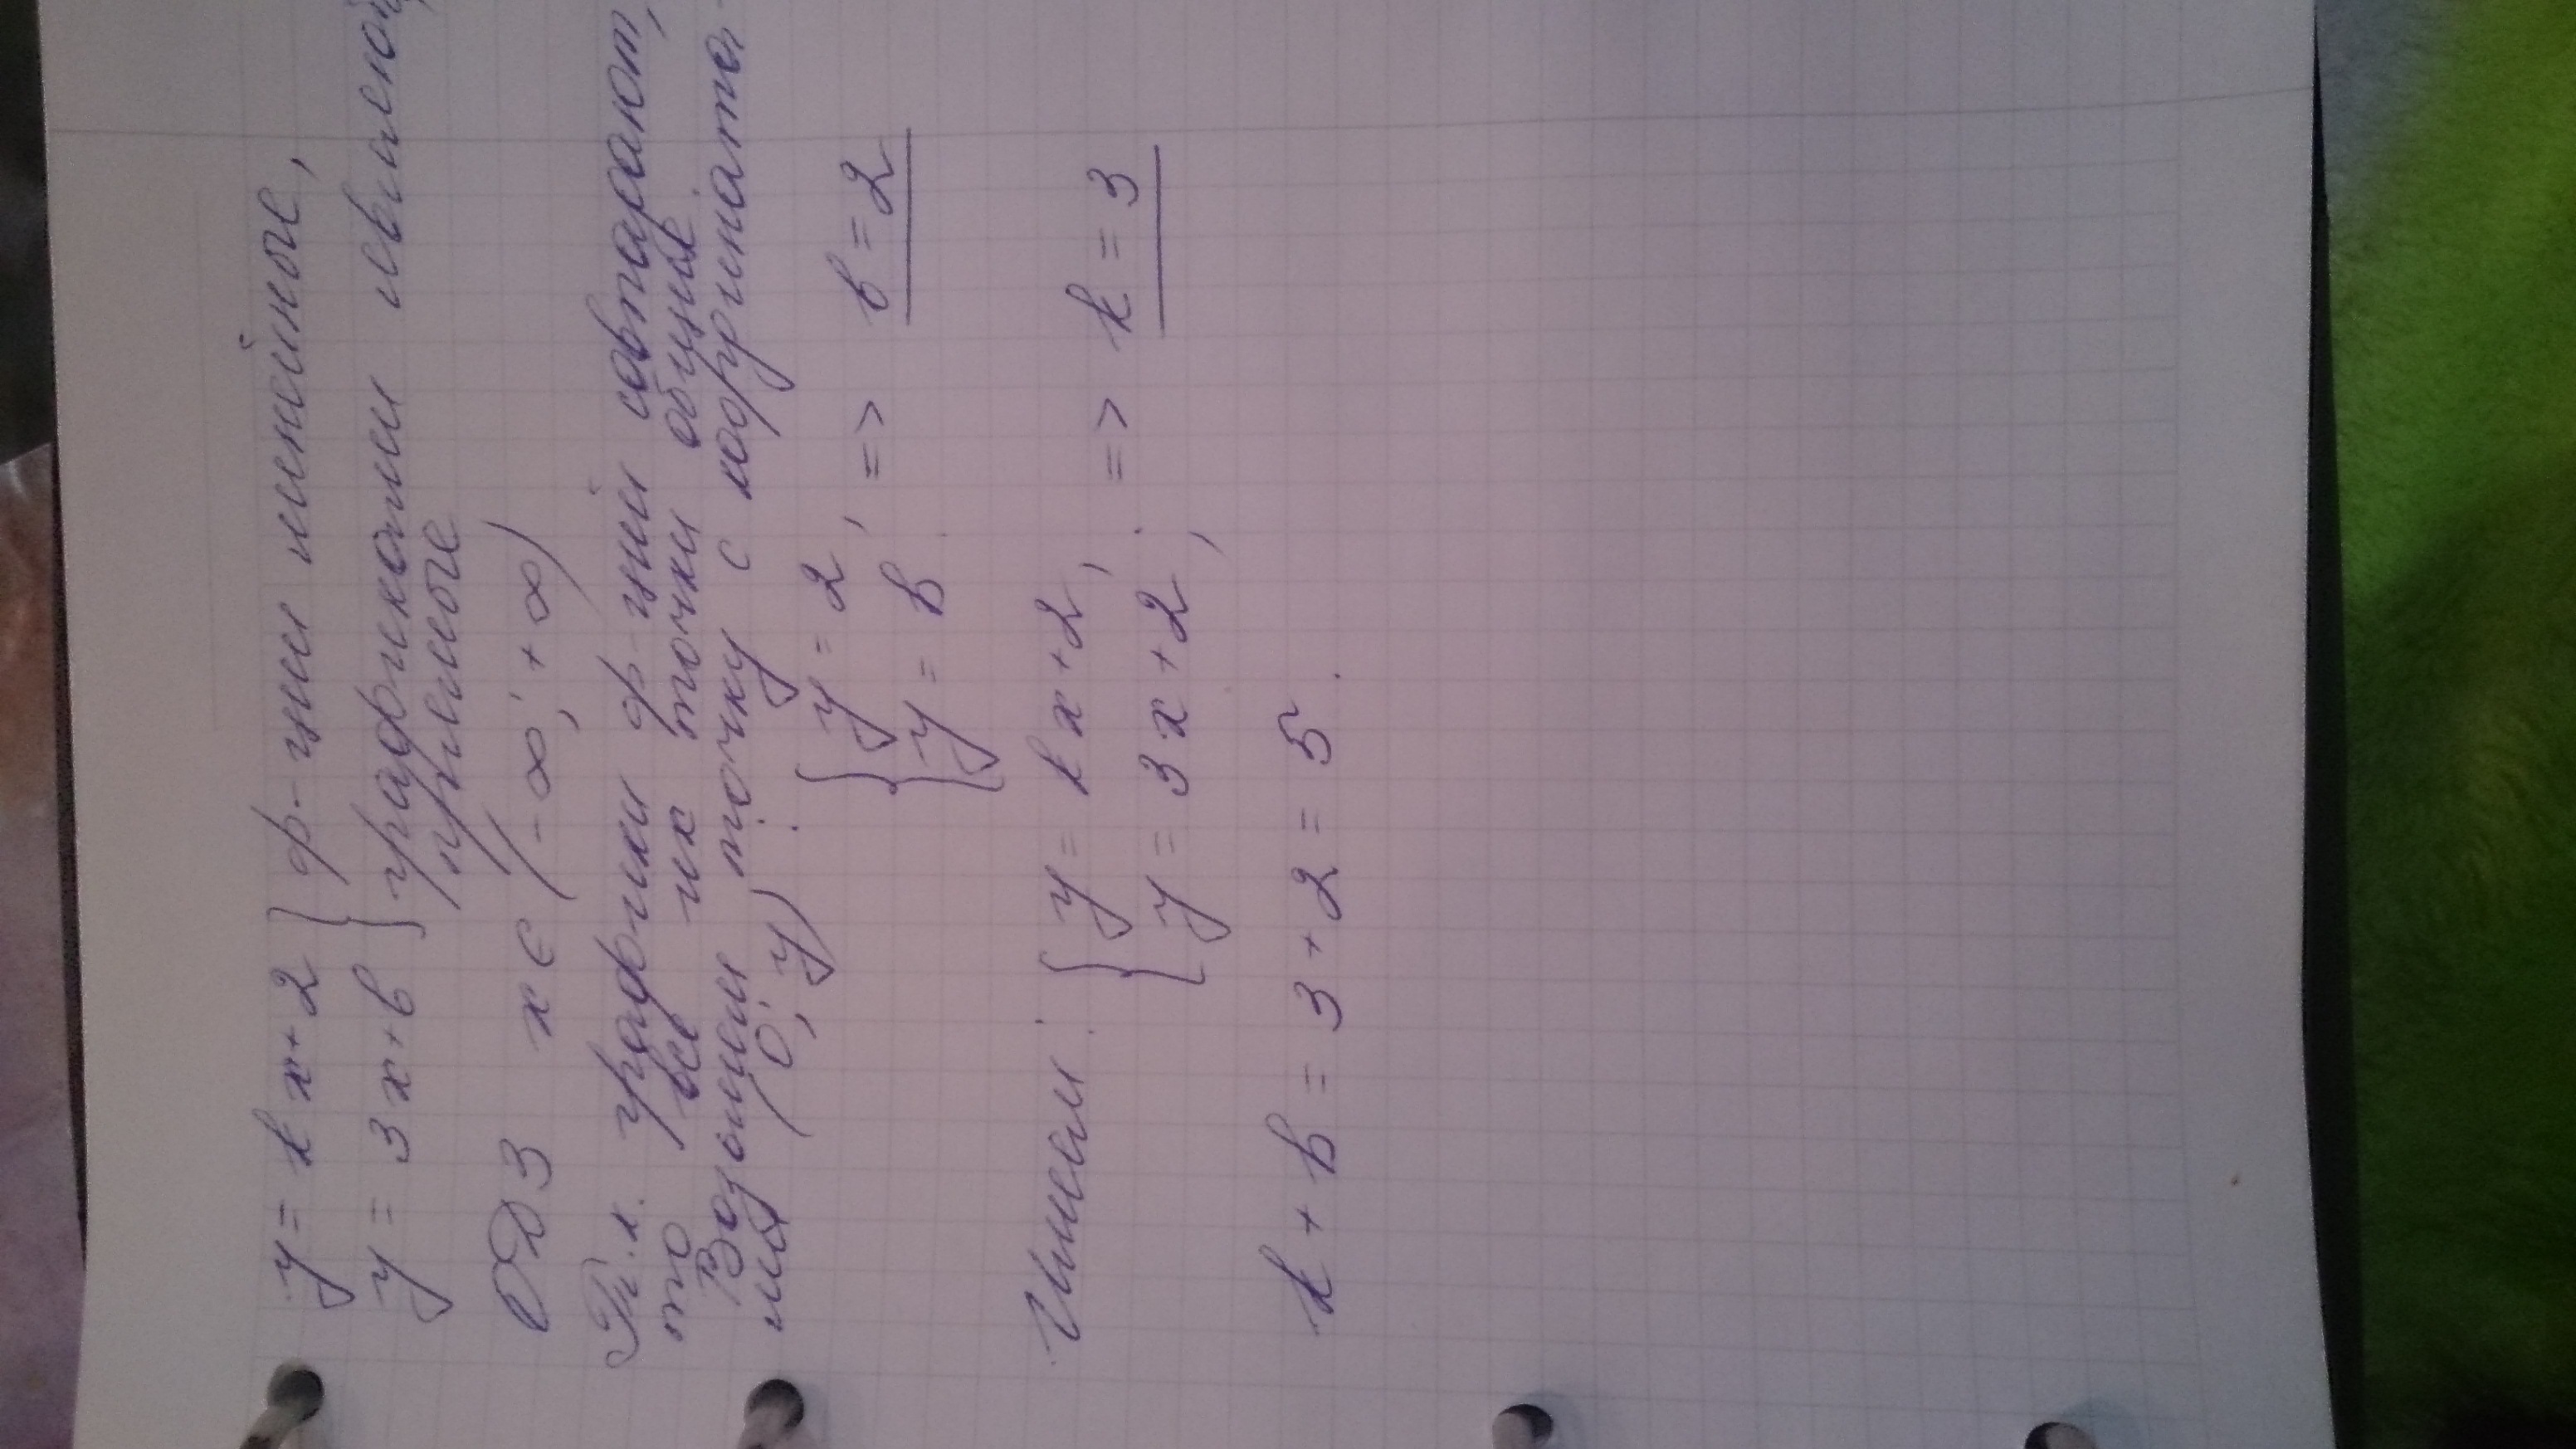 y = kx+2 } ф-ции линейные,
y = 3x+b } графиками являются
прямые
ОДЗ x ∈ (-∞; +∞)
Т.к. графики ф-ций совпадают,
то все их точки общие
Возьмем точку с координата-
ми (0; y) :
{ y = 2,
{ y = b. => b = 2
Имеем: { y = kx+2,
{ y = 3x+2, => k = 3
k + b = 3+2 = 5.